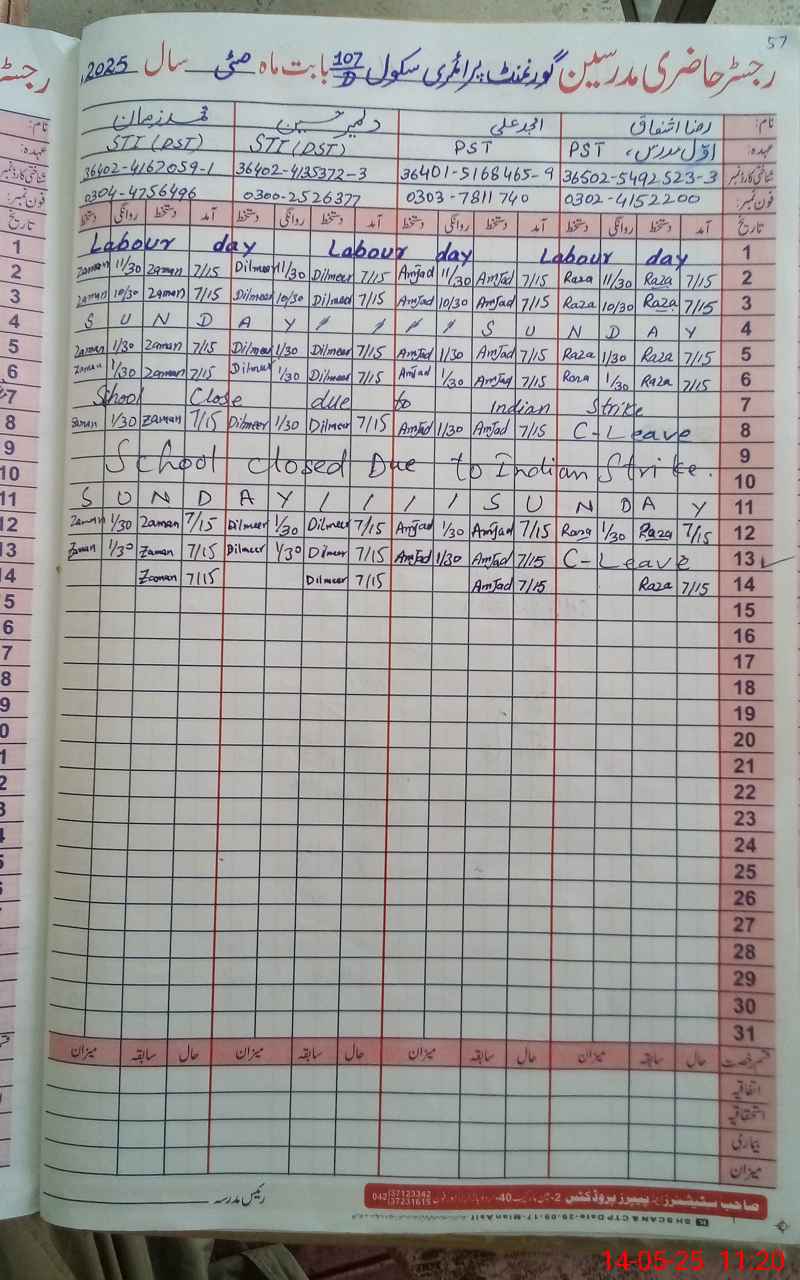 57
رجسٹر حاضری مدرسین گورنمنٹ پرائمری سکول 107/D بابت ماہ مئی سال 2025ء
نام: رضا اشفاق امجد علی دلمیر حسین محمد زمان
عہدہ: اوّل مدرس، PST PST STI (DST) STI (DST)
شناختی کارڈ نمبر 36502-5492523-3 36401-5168465-9 36402-4135372-3 36402-4167059-1
فون نمبر: 0302-4152200 0303-7811740 0300-2526377 0304-4756496
تاریخ آمد دستخط روانگی دستخط آمد دستخط روانگی دستخط آمد دستخط روانگی دستخط آمد دستخط روانگی دستخط تاریخ
1 Labour day Labour day Labour day 1
2 Zaman 11/30 Zaman 7/15 Dilmeer 11/30 Dilmeer 7/15 Amjad 11/30 Amjad 7/15 Raza 11/30 Raza 7/15 2
3 Zaman 10/30 Zaman 7/15 Dilmeer 10/30 Dilmeer 7/15 Amjad 10/30 Amjad 7/15 Raza 10/30 Raza 7/15 3
4 S U N D A Y / / / / S U N D A Y 4
5 Zaman 1/30 Zaman 7/15 Dilmeer 1/30 Dilmeer 7/15 Amjad 1/30 Amjad 7/15 Raza 1/30 Raza 7/15 5
6 Zaman 1/30 Zaman 7/15 Dilmeer 1/30 Dilmeer 7/15 Amjad 1/30 Amjad 7/15 Raza 1/30 Raza 7/15 6
7 School Close due to Indian Strike 7
8 Zaman 1/30 Zaman 7/15 Dilmeer 1/30 Dilmeer 7/15 Amjad 1/30 Amjad 7/15 C-Leave 8
9 9
10 School closed Due to Indian Strike. 10
11 S U N D A Y / / / / S U N D A Y 11
12 Zaman 1/30 Zaman 7/15 Dilmeer 1/30 Dilmeer 7/15 Amjad 1/30 Amjad 7/15 Raza 1/30 Raza 7/15 12
13 Zaman 1/30 Zaman 7/15 Dilmeer 1/30 Dilmeer 7/15 Amjad 1/30 Amjad 7/15 C-Leave 13
14 Zaman 7/15 Dilmeer 7/15 Amjad 7/15 Raza 7/15 14
5 15
6 16
7 17
8 18
9 19
0 20
1 21
2 22
3 23
4 24
5 25
6 26
7 27
8 28
9 29
0 30
1 31
قسم رخصت حال سابقہ میزان حال سابقہ میزان حال سابقہ میزان حال سابقہ میزان
اتفاقیہ
استحقاقیہ
بیماری
میزان
رئیس مدرسہ
صاحب سٹیشنرز پیپرز پروڈکٹس 042 37123342 37231615
14-05-25 11:20